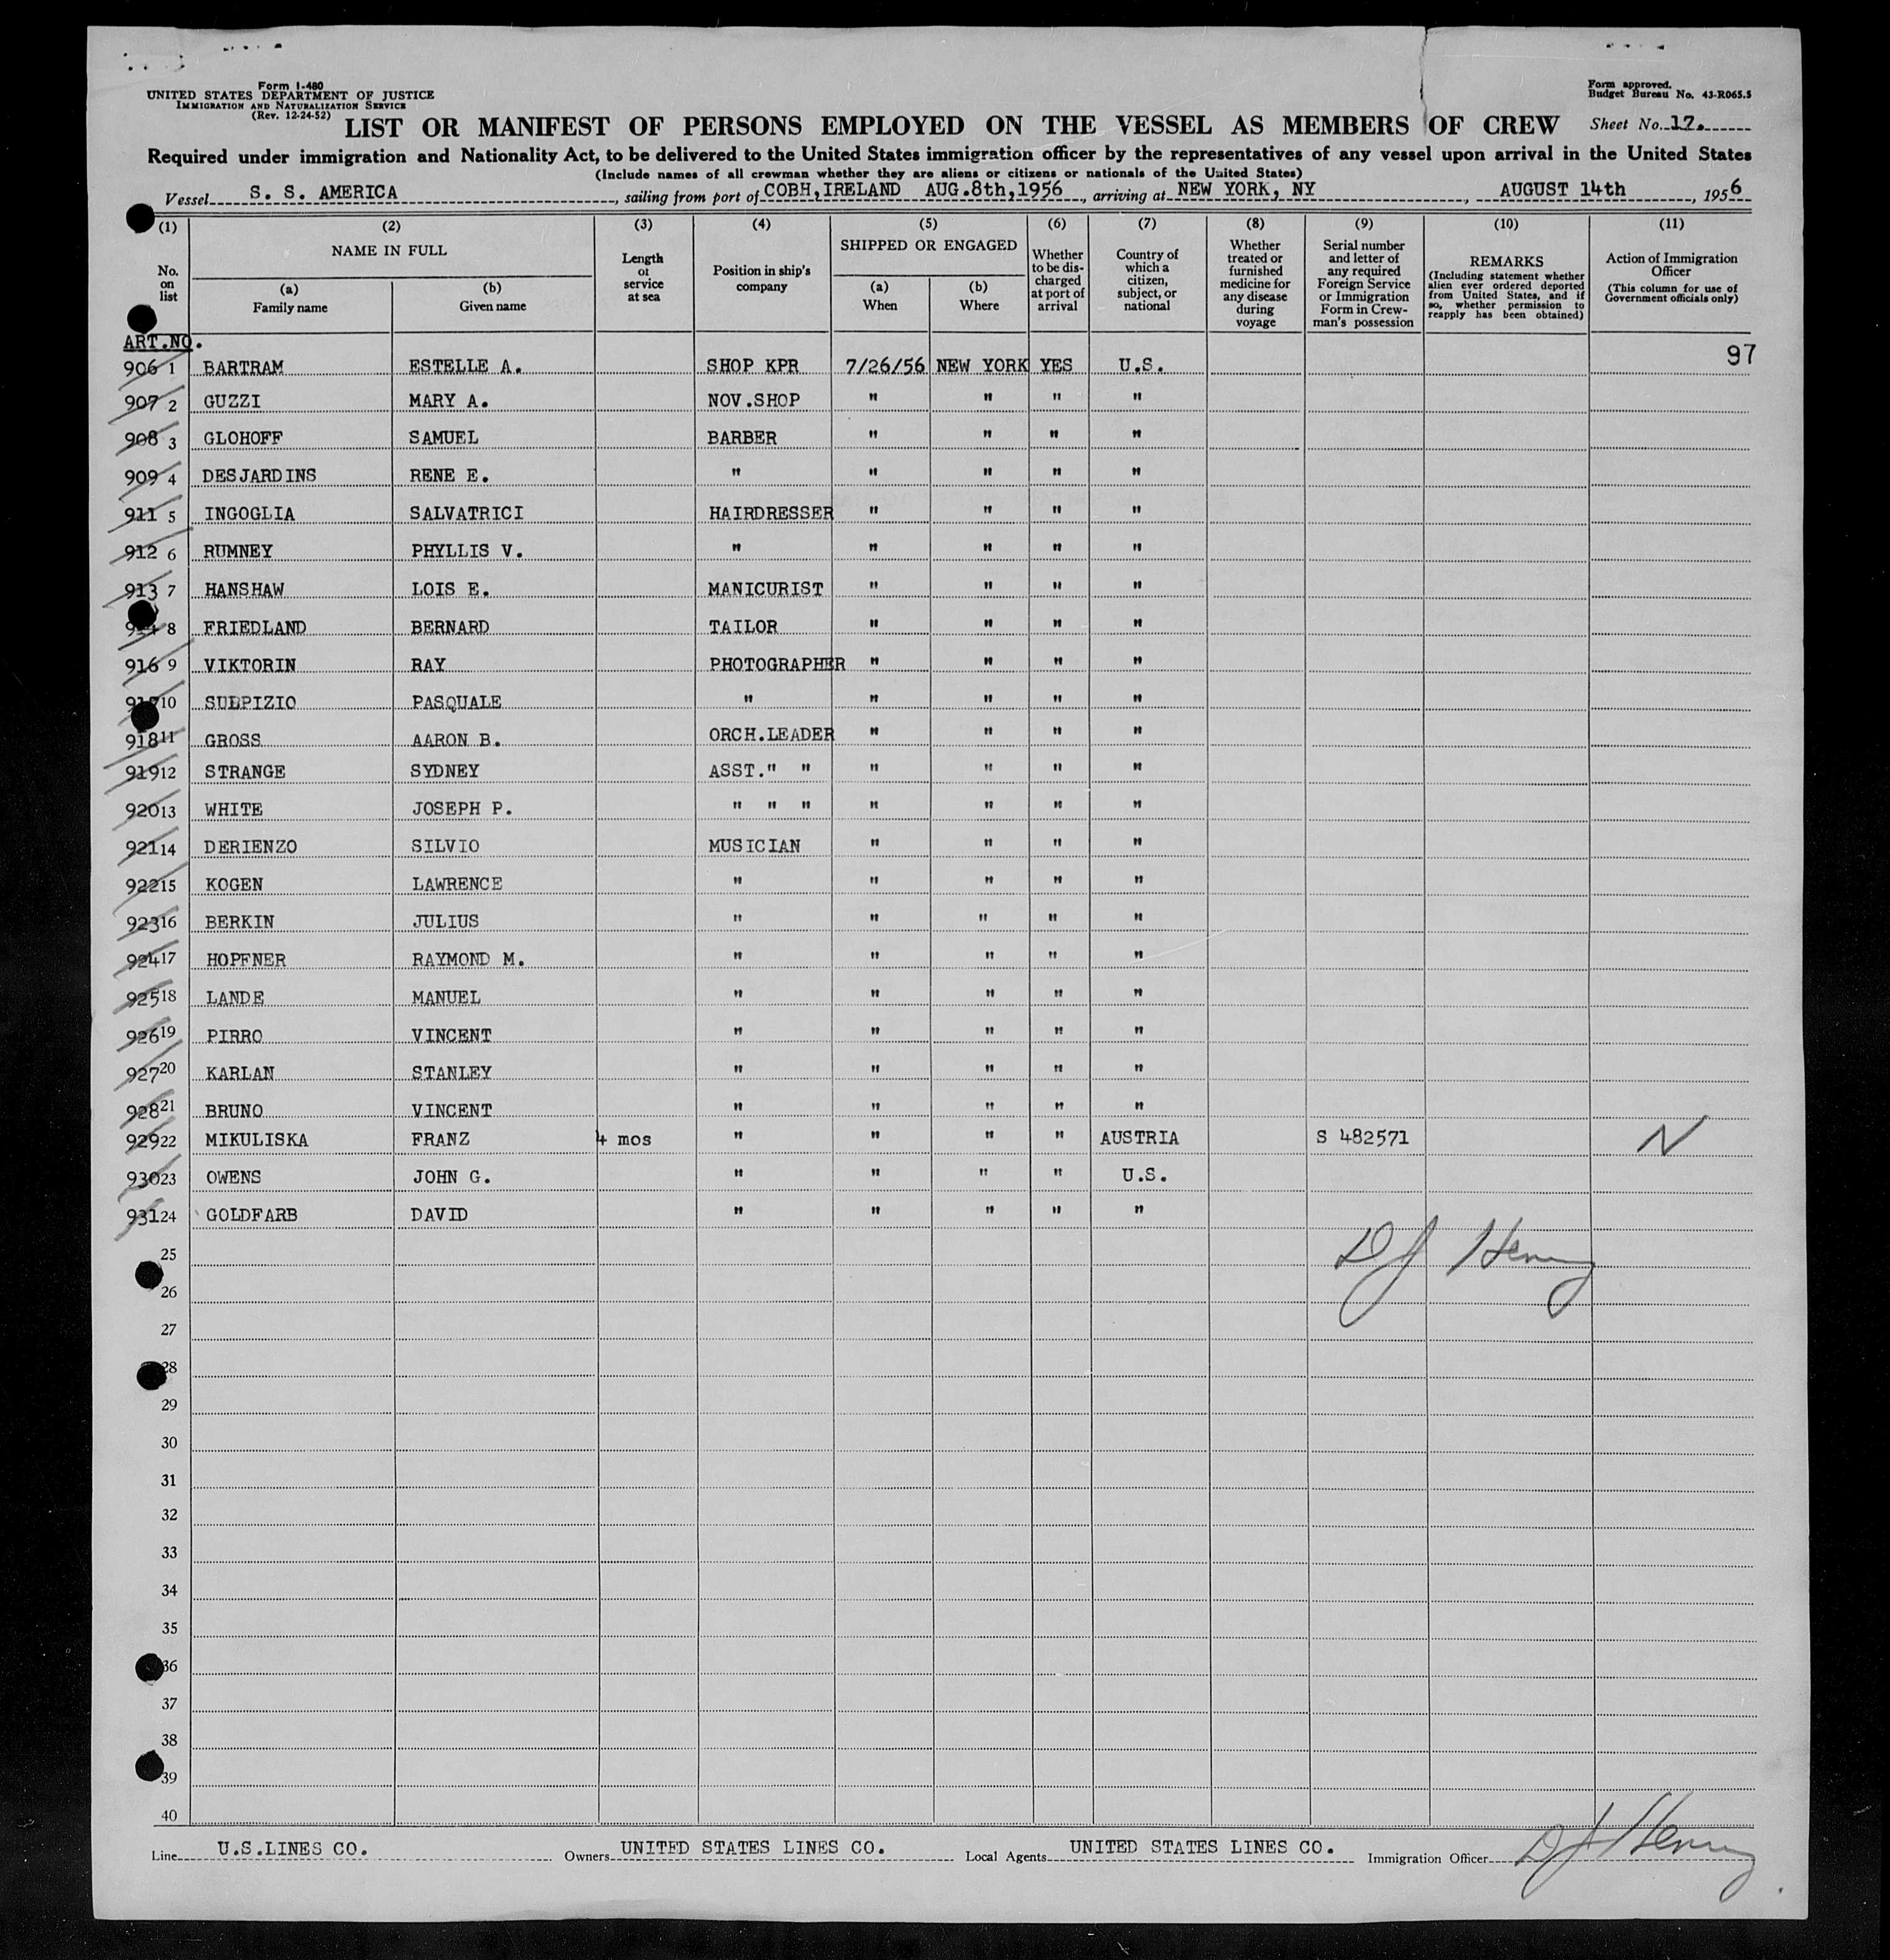 Form I-480
UNITED STATES DEPARTMENT OF JUSTICE
IMMIGRATION AND NATURALIZATION SERVICE
(Rev. 12-24-52)
Form approved.
Budget Bureau No. 43-R065.5
LIST OR MANIFEST OF PERSONS EMPLOYED ON THE VESSEL AS MEMBERS OF CREW Sheet No. 17.
Required under immigration and Nationality Act, to be delivered to the United States immigration officer by the representatives of any vessel upon arrival in the United States
(Include names of all crewman whether they are aliens or citizens or nationals of the United States)
Vessel S. S. AMERICA, sailing from port of COBH,IRELAND AUG.8th,1956, arriving at NEW YORK, NY, AUGUST 14th, 1956
(1) No. on list
(2) NAME IN FULL
(a) Family name
(b) Given name
(3) Length of service at sea
(4) Position in ship's company
(5) SHIPPED OR ENGAGED
(a) When
(b) Where
(6) Whether to be discharged at port of arrival
(7) Country of which a citizen, subject, or national
(8) Whether treated or furnished medicine for any disease during voyage
(9) Serial number and letter of any required Foreign Service or Immigration Form in Crewman's possession
(10) REMARKS (Including statement whether alien ever ordered deported from United States, and if so, whether permission to reapply has been obtained)
(11) Action of Immigration Officer (This column for use of Government officials only)
ART.NO.
97
906 1 BARTRAM ESTELLE A. SHOP KPR 7/26/56 NEW YORK YES U.S.
907 2 GUZZI MARY A. NOV.SHOP " " " "
908 3 GLOHOFF SAMUEL BARBER " " " "
909 4 DESJARDINS RENE E. " " " " "
911 5 INGOGLIA SALVATRICI HAIRDRESSER " " " "
912 6 RUMNEY PHYLLIS V. " " " " "
913 7 HANSHAW LOIS E. MANICURIST " " " "
8 FRIEDLAND BERNARD TAILOR " " " "
916 9 VIKTORIN RAY PHOTOGRAPHER " " " "
10 SULPIZIO PASQUALE " " " " "
918 11 GROSS AARON B. ORCH.LEADER " " " "
919 12 STRANGE SYDNEY ASST." " " " " "
920 13 WHITE JOSEPH P. " " " " " " "
921 14 DERIENZO SILVIO MUSICIAN " " " "
922 15 KOGEN LAWRENCE " " " " "
923 16 BERKIN JULIUS " " " " "
924 17 HOPFNER RAYMOND M. " " " " "
925 18 LANDE MANUEL " " " " "
926 19 PIRRO VINCENT " " " " "
927 20 KARLAN STANLEY " " " " "
928 21 BRUNO VINCENT " " " " "
929 22 MIKULISKA FRANZ 4 mos " " " " AUSTRIA S 482571 N
930 23 OWENS JOHN G. " " " " U.S.
931 24 GOLDFARB DAVID " " " " "
D J Henry
25
26
27
28
29
30
31
32
33
34
35
36
37
38
39
40
Line U.S.LINES CO. Owners UNITED STATES LINES CO. Local Agents UNITED STATES LINES CO. Immigration Officer D J Henry